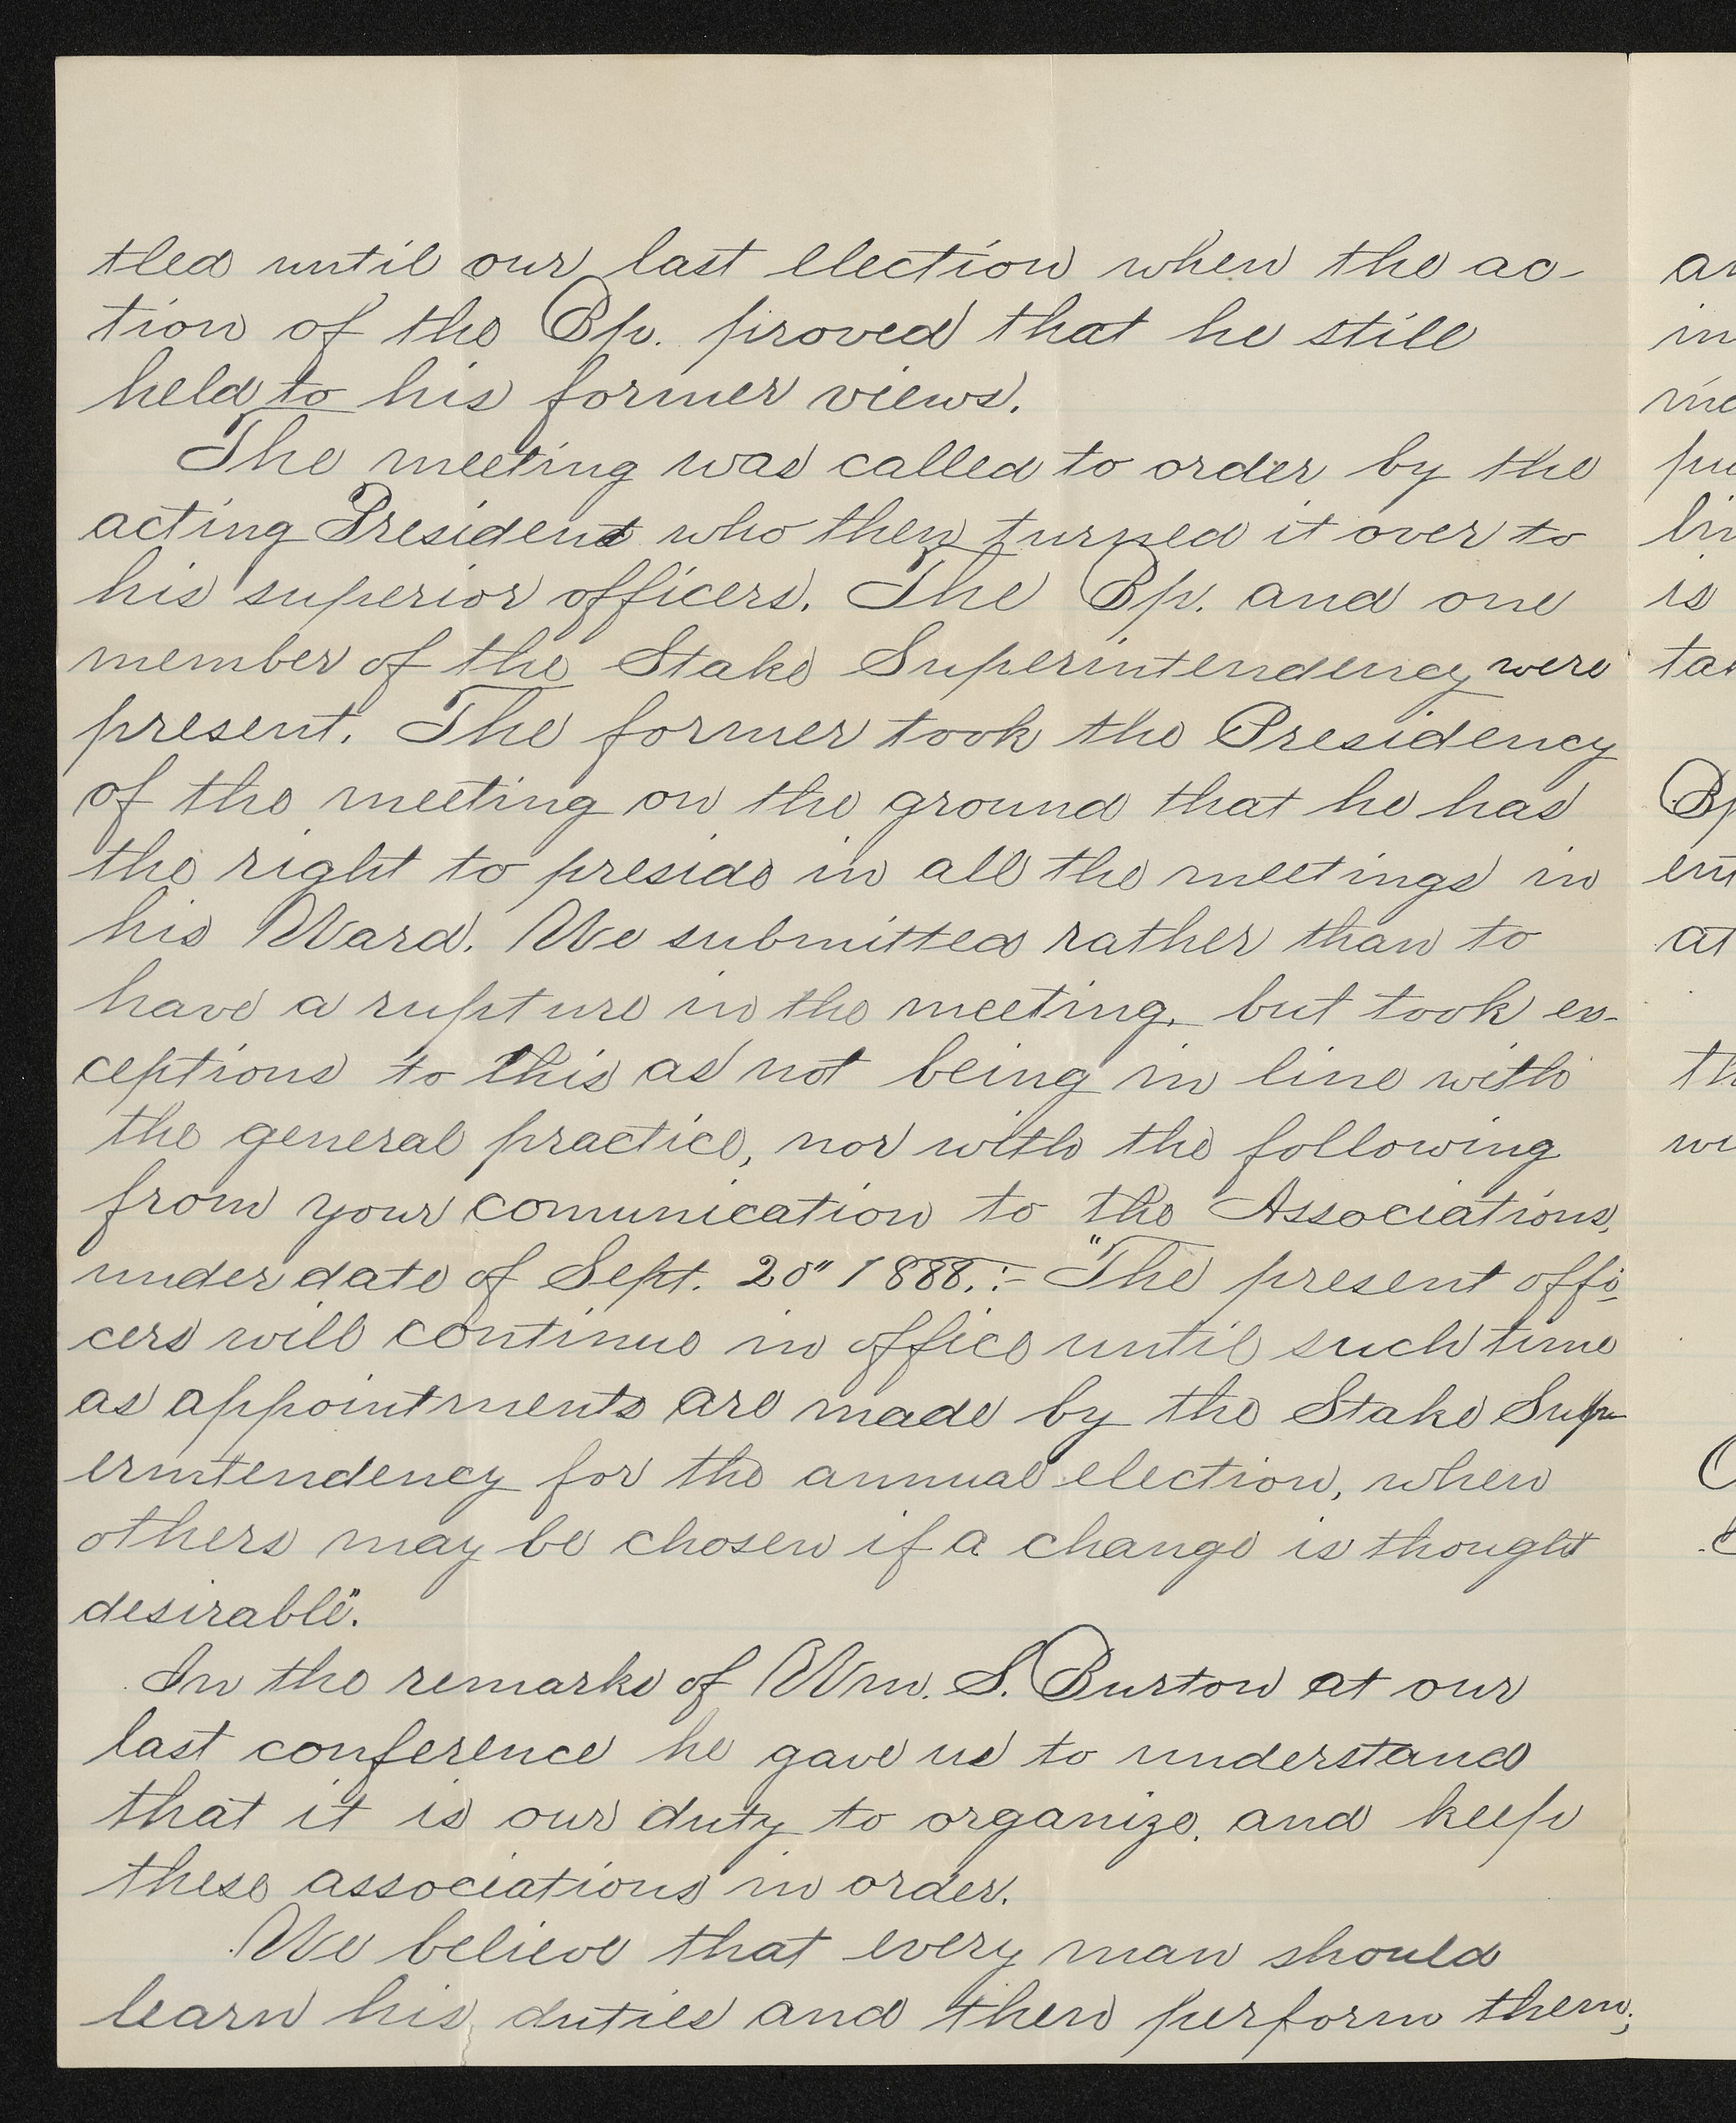 tled until our last election when the ac-
tion of the Bp. proved that he still
held to his former views.
The meeting was called to order by the
acting President who then turned it over to
his superior officers. The Bp. and one
member of the Stake Superintendency were
present. The former took the Presidency
of the meeting on the ground that he has
the right to preside in all the meetings in
his Ward. We submitted rather than to
have a rupture in the meeting, but took ex-
ceptions to this as not being in line with
the general practice, nor with the following
from your comunication to the Associations,
under date of Sept. 20" 1888.:- "The present offi-
cers will continue in office until such time
as appointments are made by the Stake Sup-
erintendency for the annual election, when
others may be chosen if a change is thought
desirable".
In the remarks of Wm. S. Burton at our
last conference he gave us to understand
that it is our duty to organize, and keep
these associations in order.
We believe that every man should
learn his duties and then perform them;
in
is
at